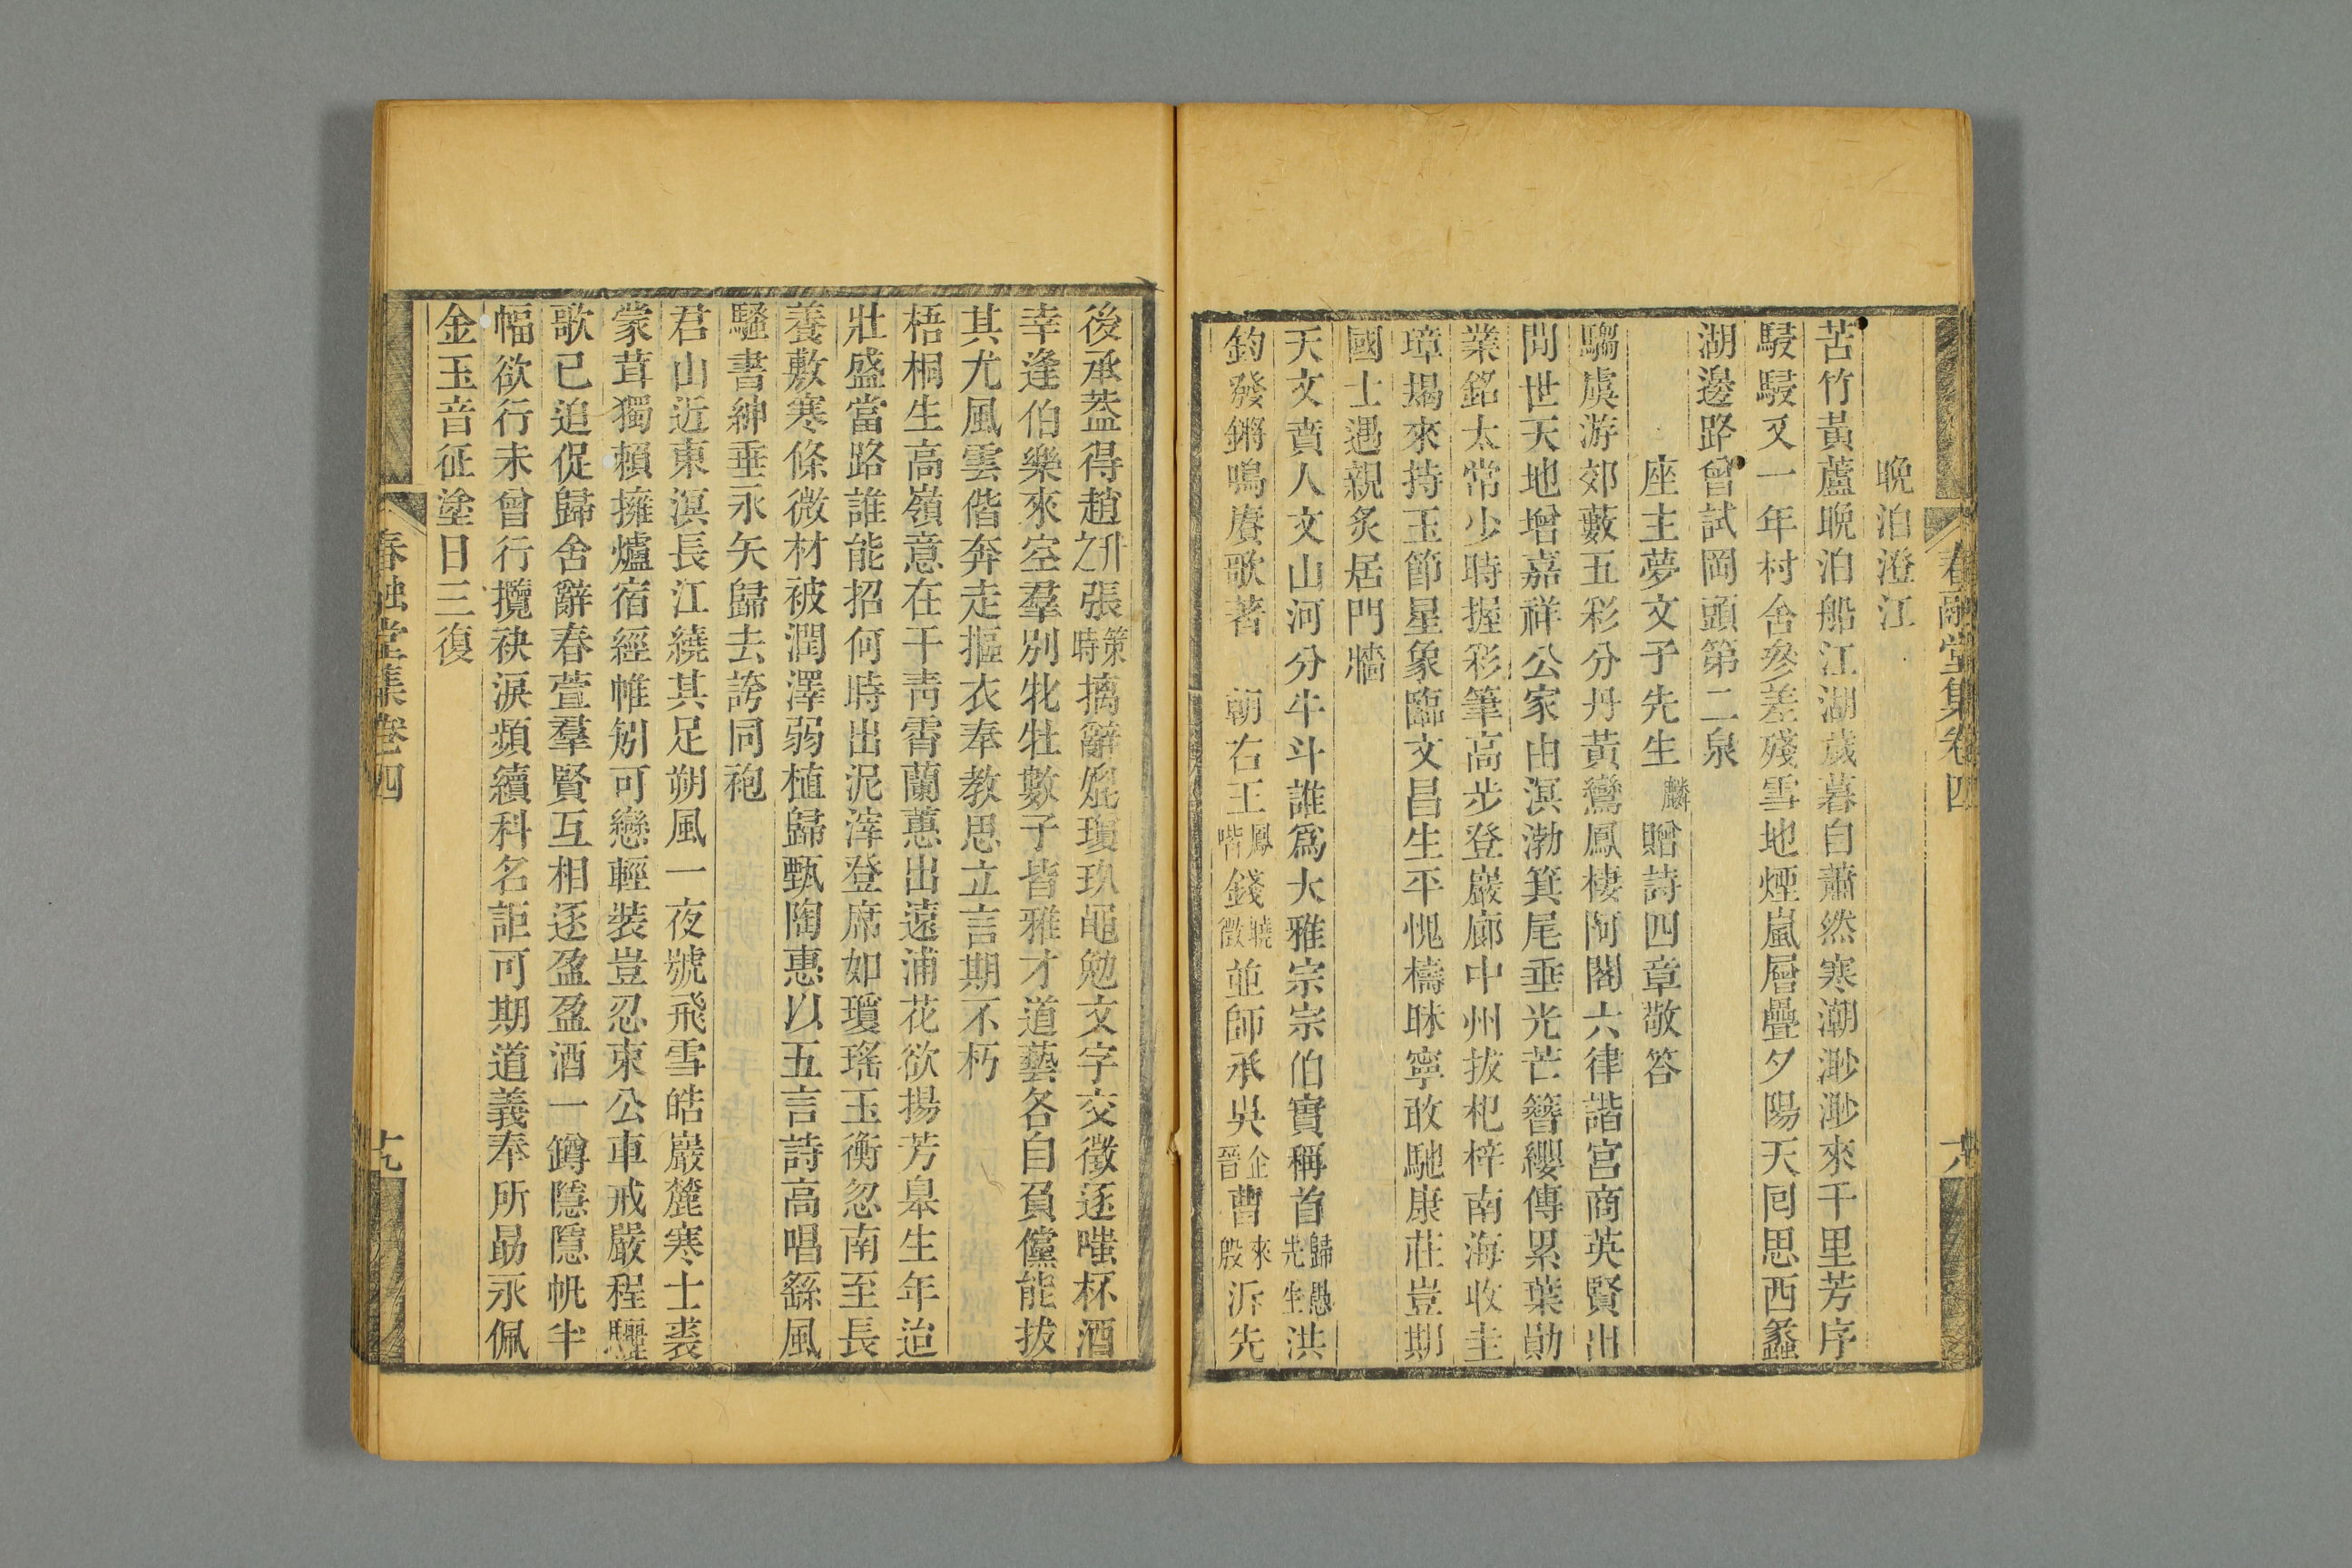 春融堂集卷四
晚泊澄江
苦竹黃蘆晚泊船江湖歲暮自蕭然寒潮渺渺來千里芳序
駸駸又一年村舍參差殘雪地煙嵐層疊夕陽天囘思西蠡
湖邊路曾試岡頭第二泉
座主夢文子先生麟贈詩四章敬答
騶虞游郊藪五彩分丹黃鸞鳳棲阿閣六律諧宮商英賢出
間世天地增嘉祥公家由溟渤箕尾垂光芒簪纓傳累葉勛
業銘太常少時握彩筆高步登巖廊中州拔杞梓南海收圭
璋朅來持玉節星象臨文昌生平愧檮昧寧敢馳康莊豈期
國士遇親炙居門牆
天文賁人文山河分牛斗誰爲大雅宗宗伯實稱首歸愚先生洪
鈞發鏘鳴賡歌著朝右王鳳喈錢曉徵並師承吳企晉曹來殷泝先
後承葢得趙升之張策時摛辭焜瓊玖黽勉文字交徵逐嗤杯酒
幸逢伯樂來空羣別牝牡數子皆雅才道藝各自負儻能拔
其尤風雲偕奔走摳衣奉教思立言期不朽
梧桐生高嶺意在干靑霄蘭蕙出遠浦花欲揚芳皋生年迨
壯盛當路誰能招何時出泥滓登席如瓊瑤玉衡忽南至長
養敷寒條微材被潤澤弱植歸甄陶惠以五言詩高唱繇風
騷書紳垂永矢歸去誇同袍
君山近東溟長江繞其足朔風一夜號飛雪皓巖麓寒士裘
蒙茸獨賴擁爐宿經帷矧可戀輕裝豈忍束公車戒嚴程驪
歌已追促歸舍辭春萱羣賢互相逐盈盈酒一罇隱隱帆半
幅欲行未曾行攬袂淚頻續科名詎可期道義奉所勗永佩
金玉音征塗日三復
春融堂集卷四
十九